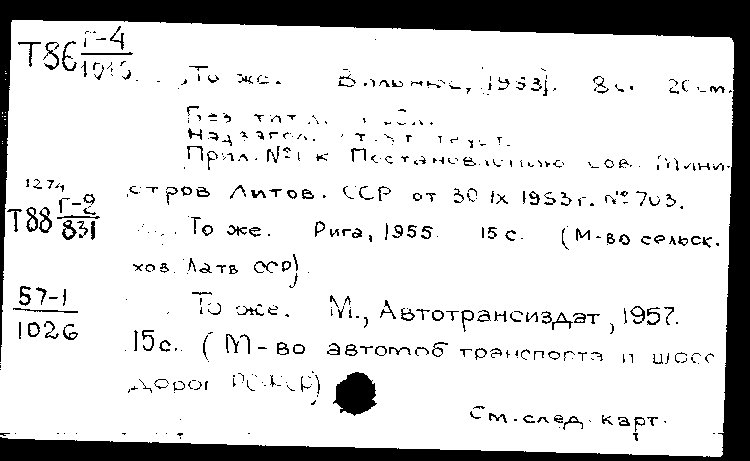 Т86 Г-4
1015 То же. Вильнюс, [1953]. 8 с. 20 см.
Без тит. л.
Надзагол.
Прил. №1 к Постановлению Сов. Мини-
стров Литов. ССР от 30 IX 1953 г. № 703.
1274
Т88 Г-2
831 То же. Рига, 1955. 15 с. (М-во сельск.
хоз. Латв ССР).
57-1
1026 То же. М., Автотрансиздат, 1957.
15 с. (М-во автомоб транспорта и шосс
дорог РСФСР)
См. след. карт.